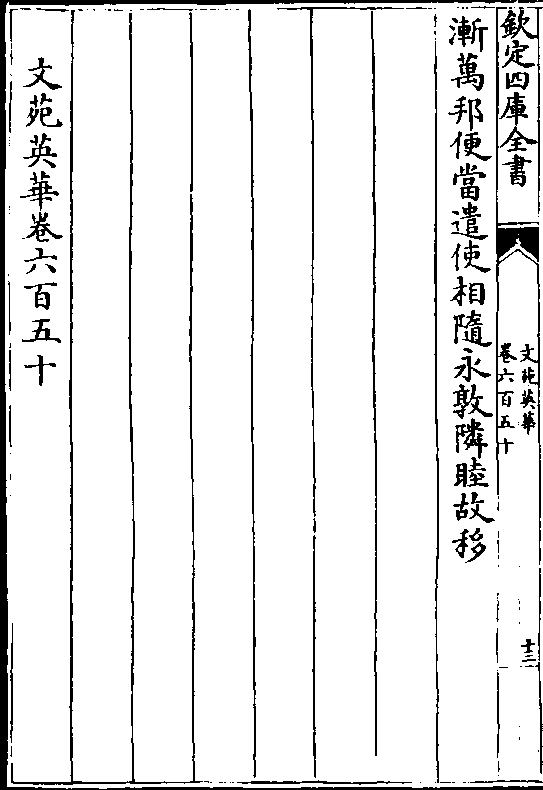 欽定四庫全書
文苑英華
卷六百五十
十三
漸萬邦便當遣使相隨永敦隣睦故移
文苑英華卷六百五十